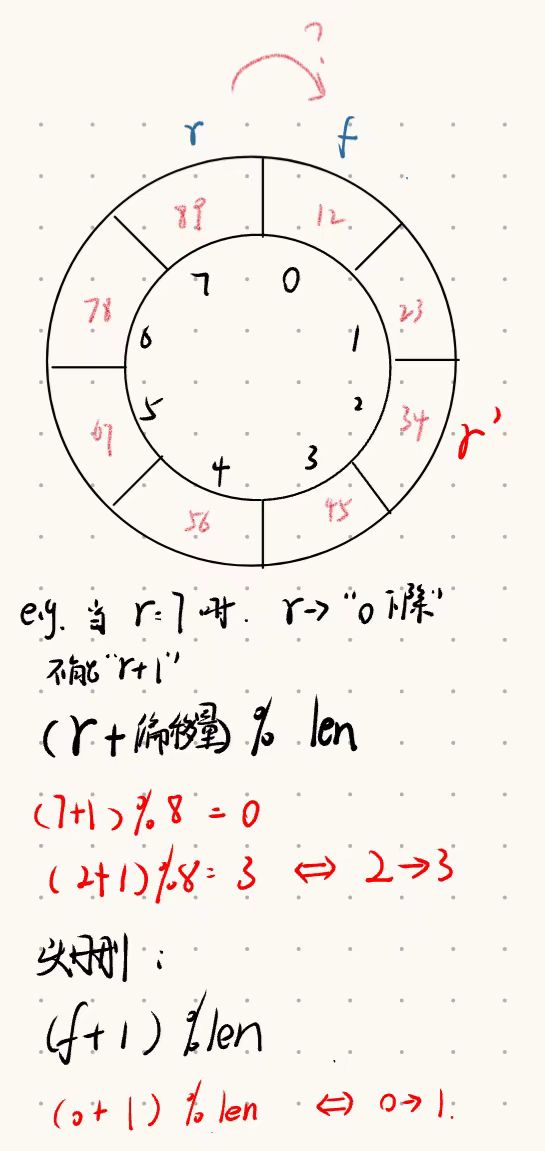 ?
r f
89 12
7 0
78 23
6 1
5 2
67 34 r'
4 3
56 45
e.g. 当 r=7 时. r→"0下标"
不能"r+1"
(r+偏移量) % len
(7+1)%8=0
(2+1)%8=3 ⇔ 2→3
头删:
(f+1)%len
(0+1)%len ⇔ 0→1.